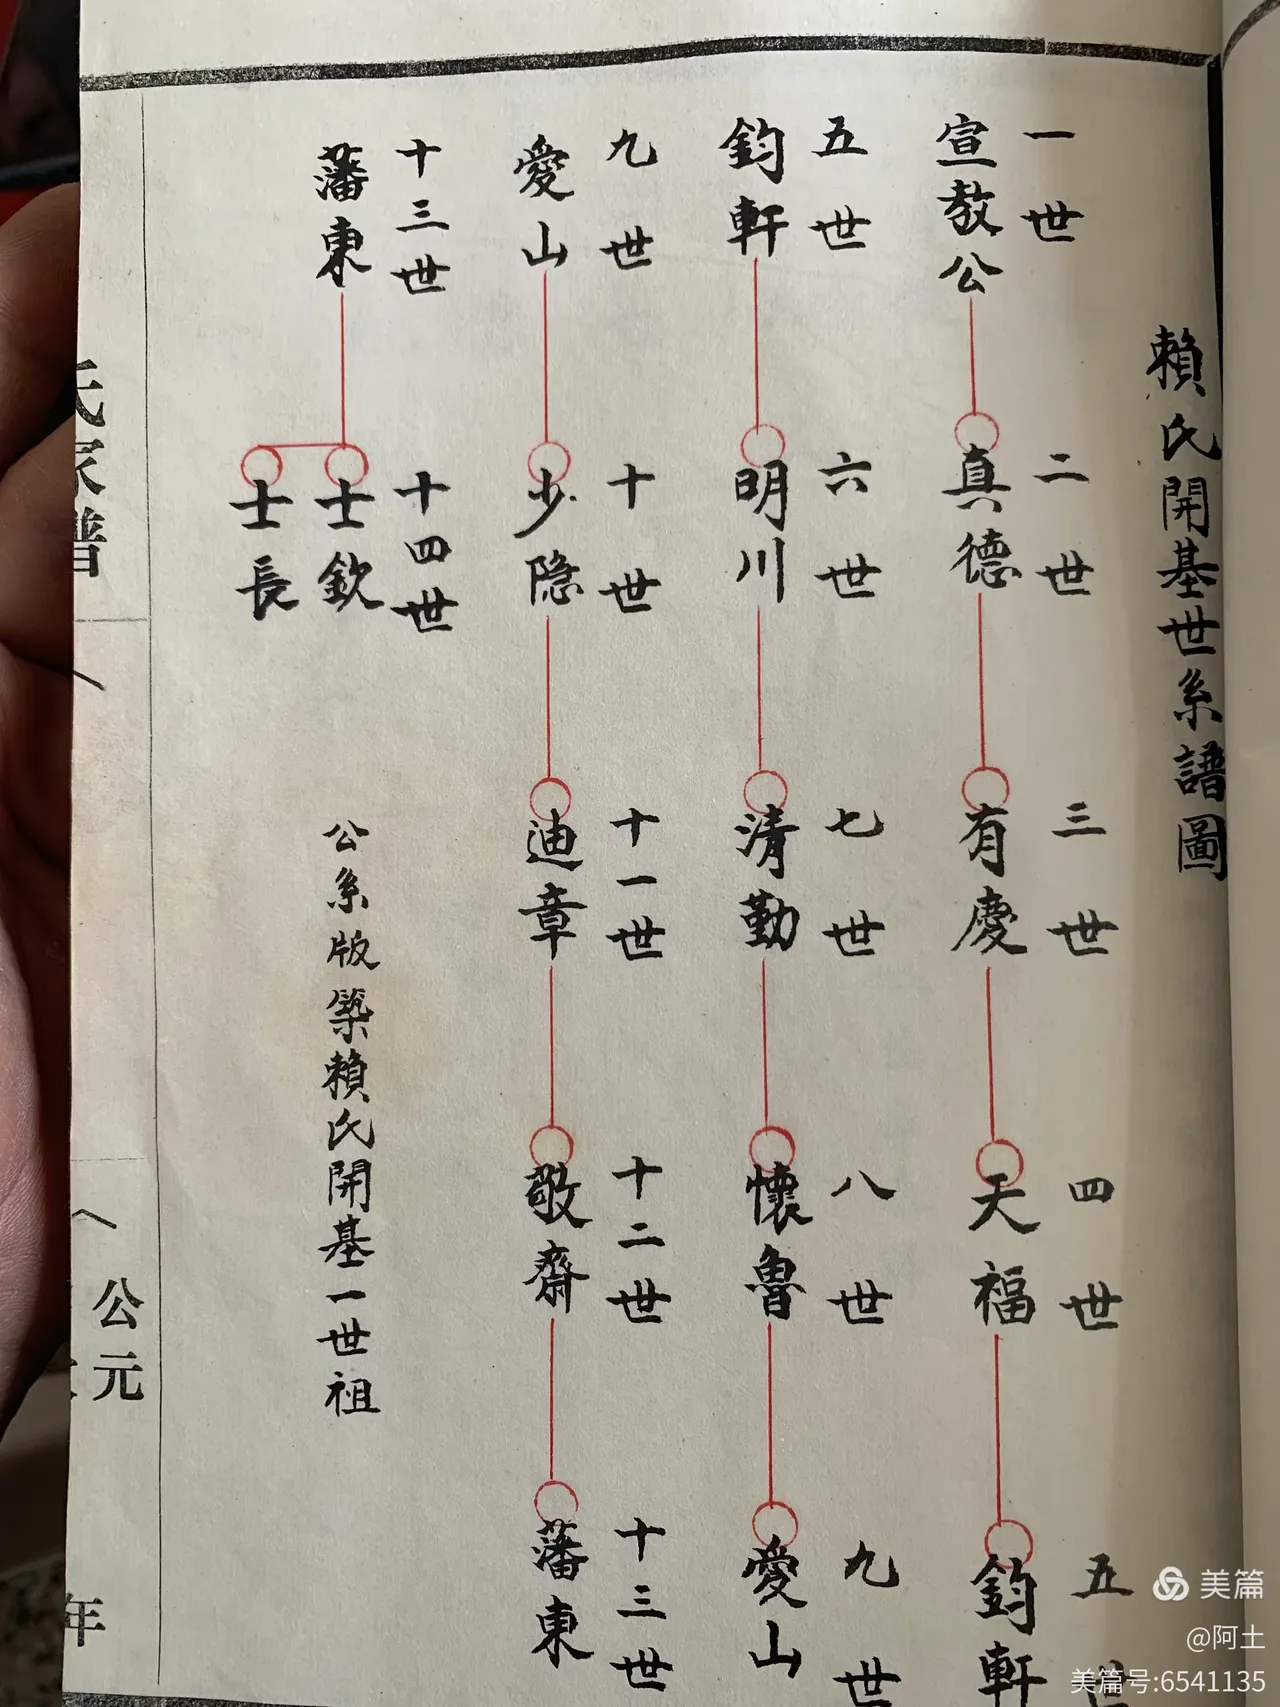 賴氏開基世系譜圖
一世
宣教公
二世
真德
三世
有慶
四世
天福
五世
鈞軒
五世
鈞軒
六世
明川
七世
清勤
八世
懷魯
九世
愛山
九世
愛山
十世
少隐
十一世
迪章
十二世
敬齋
十三世
藩東
十三世
藩東
十四世
士欽
士長
公系版築賴氏開基一世祖
氏家譜
公元
年
美篇
@阿土
美篇号:6541135